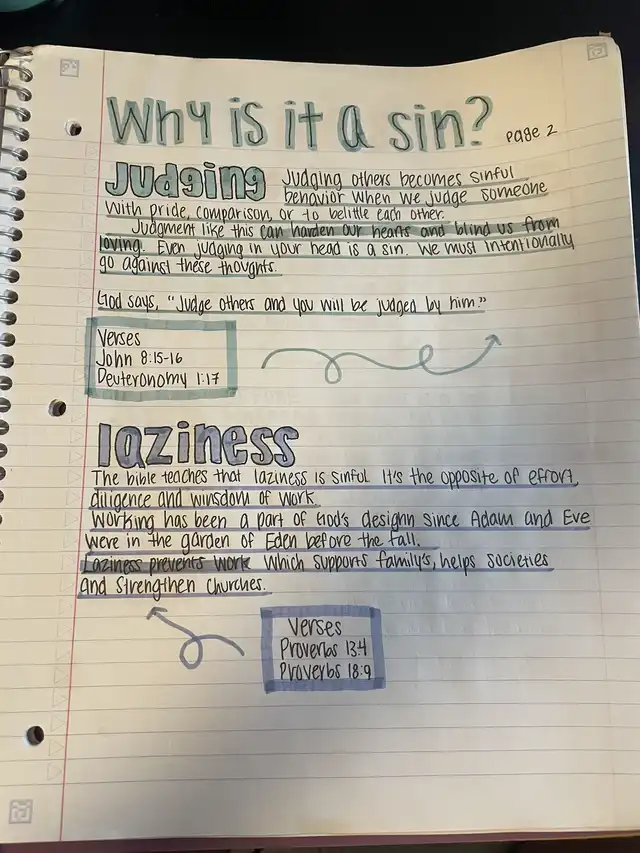 Why is it a sin? Page 2
Judging Judging others becomes sinful
behavior when we judge someone
with pride, comparison, or to belittle each other.
Judgment like this can harden our hearts and blind us from
loving. Even judging in your head is a sin. We must intentionally
go against these thoughts.
God says, "Judge others and you will be judged by him."
Verses
John 8:15-16
Deuteronomy 1:17
laziness
The bible teaches that laziness is sinful It's the opposite of effort,
diligence and winsdom of work.
Working has been a part of God's designn since Adam and Eve
were in the garden of Eden before the fall.
Laziness prevents work which supports family's, helps societies
and strengthen churches.
Verses
Proverbs 13:4
Proverbs 18:9